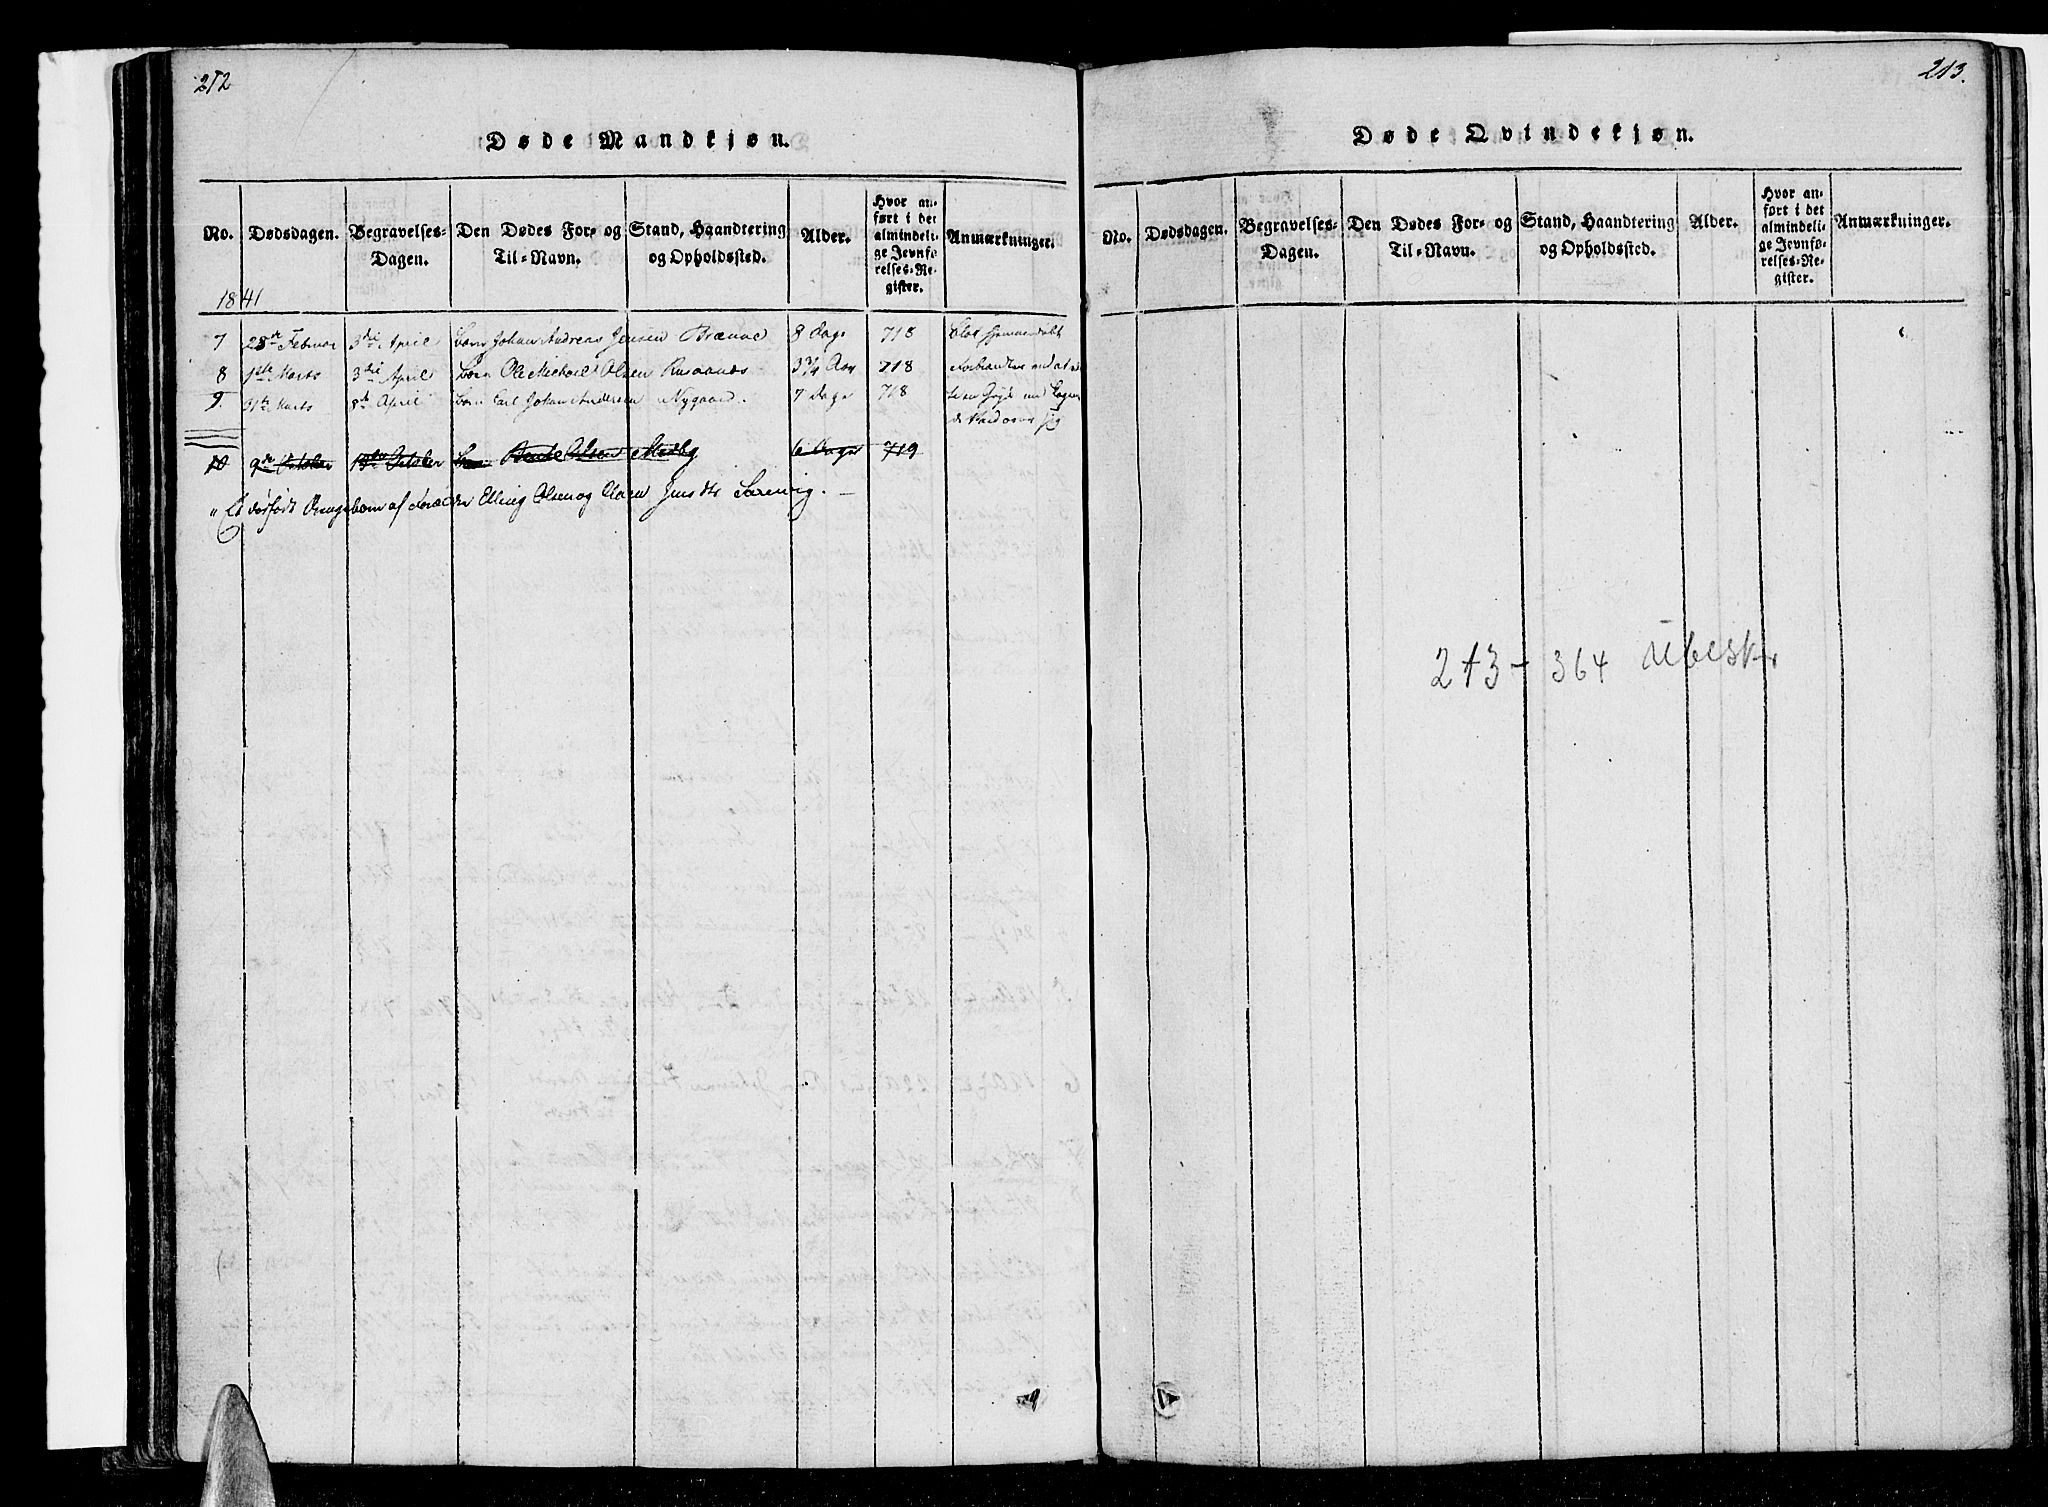 212
Døde Mandkjøn.
No.
Dødsdagen.
Begravelses-
Dagen.
Den Dødes For- og
Til-Navn.
Stand, Haandtering
og Opholdssted.
Alder.
Hvor an-
ført i det
almindeli-
ge Jevnfø-
relses-Re-
gister.
Anmærkninger.
1841
7 28de Februar 3die April Barn Johan Andreas Jensen Brænne 8 Dage 718
8 1ste Marts 3die April Barn Ole Michael Olsen 3 3/4 Aar 718
9. 31te Marts 8de April Barn Carl Johan Andersen Nygaard. 7 Dage 718
10 9de October October Barn Olsen 6 Dage 719
" Et dødfødt Drengebarn af Forældre Elling Olsen og Maren Jensdtr
213.
Døde Qvindekjøn.
No.
Dødsdagen.
Begravelses-
Dagen.
Den Dødes For- og
Til-Navn.
Stand, Haandtering
og Opholdssted.
Alder.
Hvor an-
ført i det
almindeli-
ge Jevnfø-
relses-Re-
gister.
Anmærkninger.
213 - 364 ubeskr